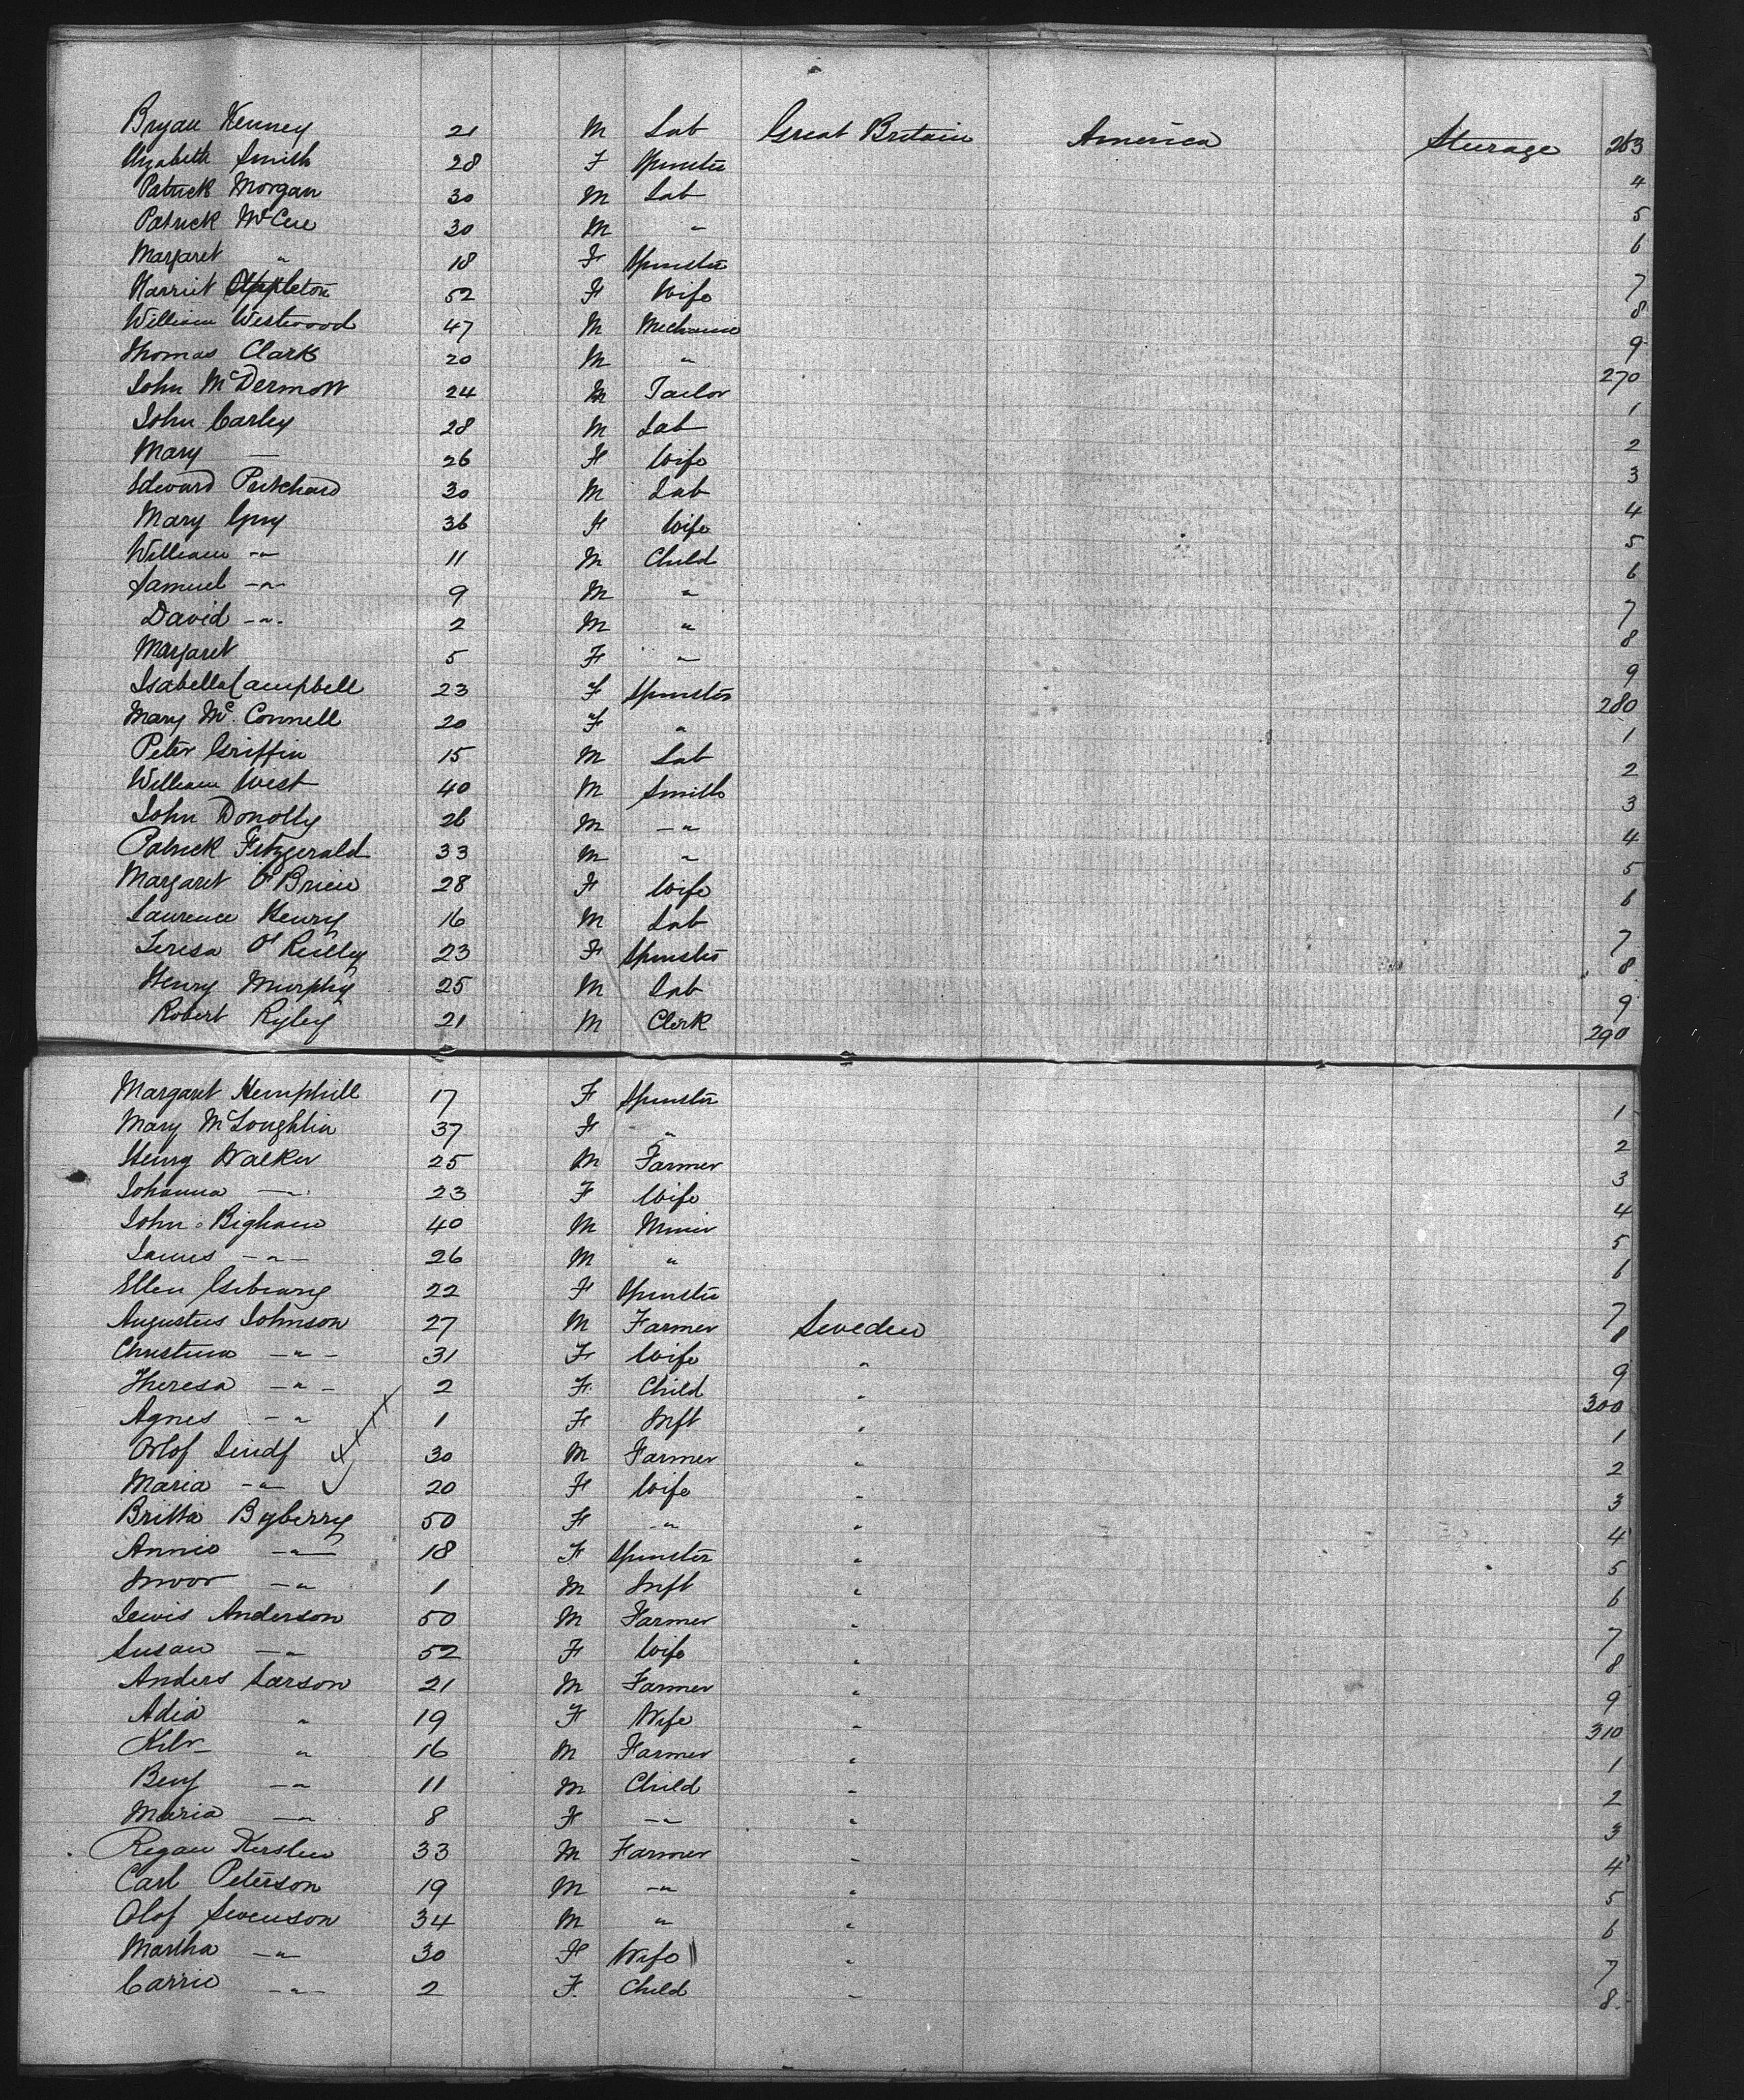 Bryan Kenney 21 M Lab Great Britain America Steerage 263
Elizabeth Smith 28 F Spinster 4
Patrick Morgan 30 M Lab 5
Patrick McCue 30 M " 6
Margaret " 18 F Spinster 7
Harriet Appleton 52 F Wife 8
William Westwood 47 M Mechanic 9
Thomas Clark 20 M " 270
John McDermott 24 M Tailor 1
John Carley 28 M Lab 2
Mary — 26 F Wife 3
Edward Pritchard 30 M Lab 4
Mary Guy 36 F Wife 5
William -"- 11 M Child 6
Samuel -"- 9 M " 7
David -"- 2 M " 8
Margaret 5 F " 9
Isabella Campbell 23 F Spinster 280
Mary McConnell 20 F " 1
Peter Griffin 15 M Lab 2
William West 40 M Smith 3
John Donolly 26 M -" 4
Patrick Fitzgerald 33 M " 5
Margaret O'Brien 28 F Wife 6
Laurence Henry 16 M Lab 7
Teresa O'Reilly 23 F Spinster 8
Henry Murphy 25 M Lab 9
Robert Ryley 21 M Clerk 290
Margaret Hemphill 17 F Spinster 1
Mary McLoughlin 37 F " 2
Henry Walker 25 M Farmer 3
Johanna -"- 23 F Wife 4
John Bigham 40 M Miner 5
James -"- 26 M " 6
Ellen 22 F Spinster 7
Augustus Johnson 27 M Farmer Sweden 8
Christina -"- 31 F Wife " 9
Theresa -"- 2 F Child " 300
Agnes -" 1 F Inft " 1
Olof 30 M Farmer " 2
Maria -"- 20 F Wife " 3
Britta Byberry 50 F -" " 4
Annie -"- 18 F Spinster " 5
-" 1 M Inft " 6
Lewis Anderson 50 M Farmer " 7
Susan -" 52 F Wife " 8
Anders Larson 21 M Farmer " 9
Adia " 19 F Wife " 310
" 16 M Farmer " 1
Benj -" 11 M Child " 2
Maria -" 8 F -" " 3
Kersten 33 M Farmer " 4
Carl Peterson 19 M -" " 5
Olof Swenson 34 M " " 6
Martha -"- 30 F Wife " 7
Carrie -"- 2 F Child " 8